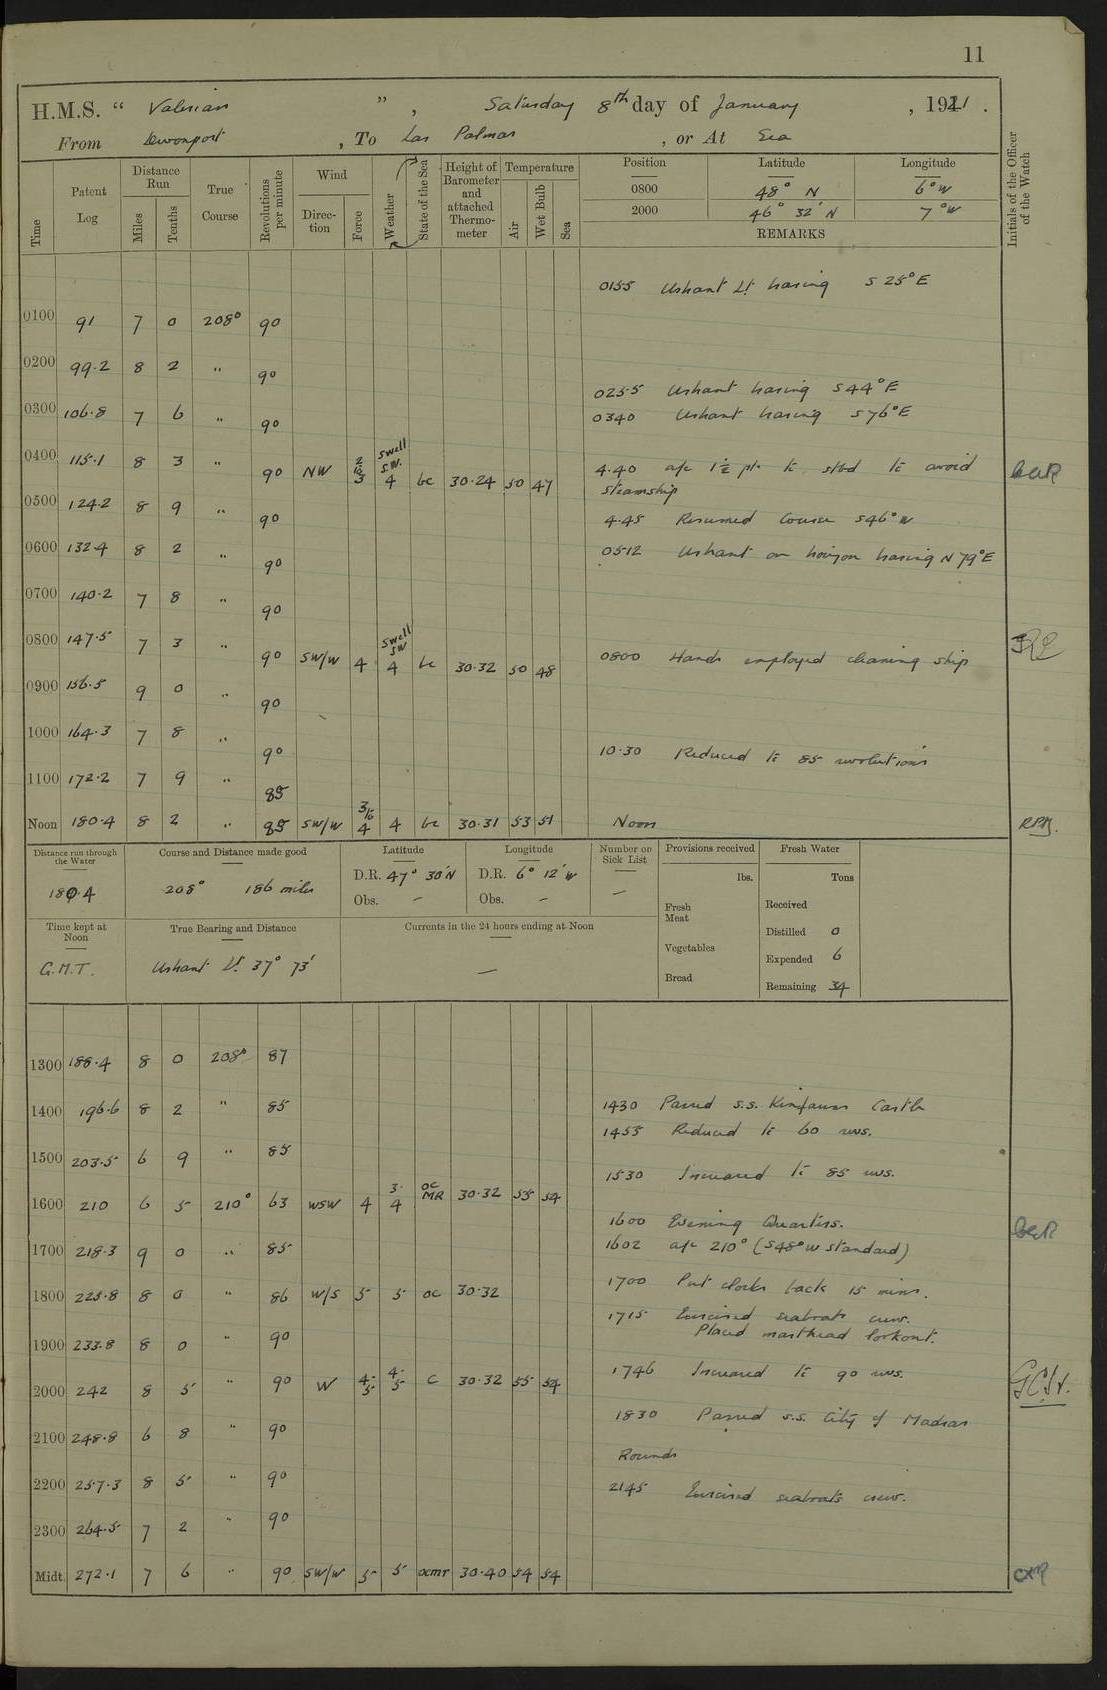 11
H.M.S. " Valerian ", Saturday 8th day of January, 1921.
From Devonport, To Las Palmas, or At Sea
Time
Patent Log
Distance Run
Miles
Tenths
True Course
Revolutions per minute
Wind
Direction
Force
Weather
State of the Sea
Height of Barometer and attached Thermometer
Temperature
Air
Wet Bulb
Sea
Position Latitude Longitude
0800 48° N 6° W
2000 46° 32' N 7° W
REMARKS
Initials of the Officer of the Watch
0155 Ushant Lt bearing S 25° E
0100 91 7 0 208° 90
0200 99.2 8 2 " 90
0255 Ushant bearing S 44° E
0300 106.8 7 6 " 90
0340 Ushant bearing S 76° E
0400 115.1 8 3 " 90 NW 2 to 3 swell S.W. 4 bc 30.24 50 47
4.40 a/c 1½ pt. to stbd to avoid steamship
0500 124.2 8 9 " 90
4.45 Resumed Course S46° W
0600 132.4 8 2 " 90
0512 Ushant on horizon bearing N 79° E
0700 140.2 7 8 " 90
0800 147.5 7 3 " 90 SW/W 4 swell SW 4 bc 30.32 50 48
0800 Hands employed cleaning ship
0900 156.5 9 0 " 90
1000 164.3 7 8 " 90
10.30 Reduced to 85 revolutions
1100 172.2 7 9 " 85
Noon 180.4 8 2 " 85 SW/W 3 to 4 4 bc 30.31 53 51 Noon
Distance run through the Water
180.4
Course and Distance made good
208° 186 miles
Latitude
D.R. 47° 30' N
Obs. —
Longitude
D.R. 6° 12' W
Obs. —
Number on Sick List
—
Provisions received
lbs.
Fresh Meat
Vegetables
Bread
Fresh Water
Tons
Received
Distilled 0
Expended 6
Remaining 34
Time kept at Noon
G.M.T.
True Bearing and Distance
Ushant Lt. 37° 73'
Currents in the 24 hours ending at Noon
—
1300 188.4 8 0 208° 87
1400 196.6 8 2 " 85
1430 Passed s.s. Kinfauns Castle
1455 Reduced to 60 revs.
1500 203.5 6 9 " 85
1530 Increased to 85 revs.
1600 210 6 5 210° 63 WSW 4 3. 4 OC MR 30.32 55 54
1600 Evening Quarters.
1602 a/c 210° (S48° W standard)
1700 218.3 9 0 " 85
1700 Put clocks back 15 mins.
1800 225.8 8 0 " 86 W/S 5 5 oc 30.32
1715 Exercised seaboats crew.
Placed masthead lookout.
1900 233.8 8 0 " 90
1746 Increased to 90 revs.
2000 242 8 5 " 90 W 4-5 4-5 c 30.32 55 54
1830 Passed s.s. City of Madras
2100 248.8 6 8 " 90
Rounds
2200 257.3 8 5 " 90
2145 Exercised seaboats crew.
2300 264.5 7 2 " 90
Midt. 272.1 7 6 " 90 SW/W 5 5 ocmr 30.40 54 54